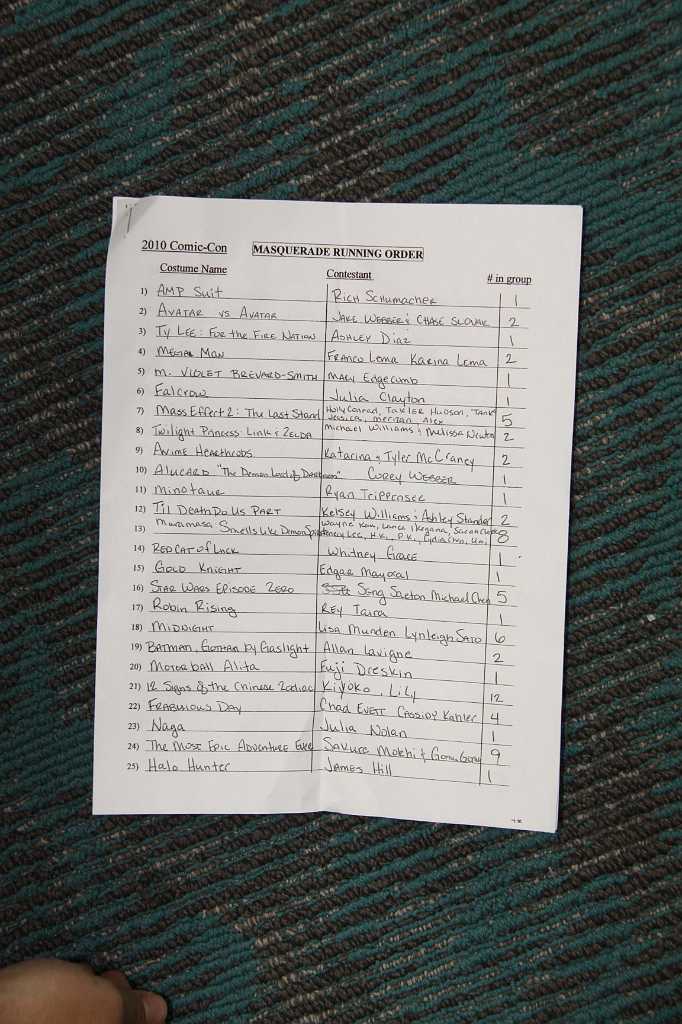 2010 Comic-Con MASQUERADE RUNNING ORDER
Costume Name Contestant # in group
1) AMP Suit Rich Schumacher 1
2) AVATAR VS AVATAR JAKE WEBBER & CHASE 2
3) Ty Lee: For the Fire Nation Ashley Diaz 1
4) MEGA MAN Franco Lema Karina Lema 2
5) M. VIOLET BREVARD-SMITH Macy Edgecumb 1
6) Falcrow Julia Clayton 1
7) Mass Effect 2: The Last Stand Holly Conrad, Hudson, "Tank" Jessica, Meridan, Alex 5
8) Twilight Princess: Link & ZELDA Michael Williams & Melissa 2
9) Anime Heartthrobs Katarina & Tyler McCrancy 2
10) ALUCARD "The Demon Lord of Darkness" Corey WEBBER 1
11) Minotaur Ryan Trippensee 1
12) Til Death Do Us PART Kelsey Williams & Ashley Stander 2
13) Muramasa, Smells Like Demon Spirit Wayne Lance 8
14) RED CAT of Luck Whitney Grace 1
15) GOLD KNIGHT Edgar Mayoral 1
16) STAR WARS EPISODE ZERO Song Saeton Michael Chen 5
17) Robin Rising REY Taira 1
18) MIDNIGHT Lisa Munden Lynleigh SATO 6
19) BATMAN, GOTHAM by Gaslight Allan Lavigne 2
20) Motorball Alita Fuji Dreskin 1
21) 12 Signs of the Chinese Zodiac Kiyoko, Lily 12
22) FRABJULOUS DAY Chad EVETT CASSIDY Kahler 4
23) Naga Julia Nolan 1
24) The Most Epic Adventure Ever Sakura Mokhi & 9
25) Halo Hunter JAMES Hill 1